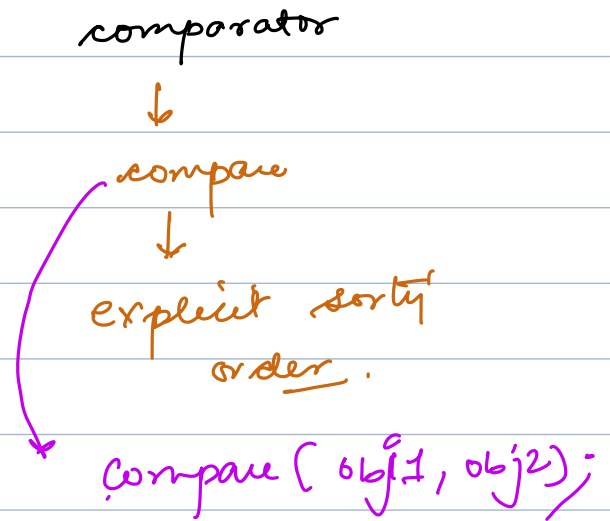 comparator
compare
explicit sorty
order.
compare( obj1, obj2);